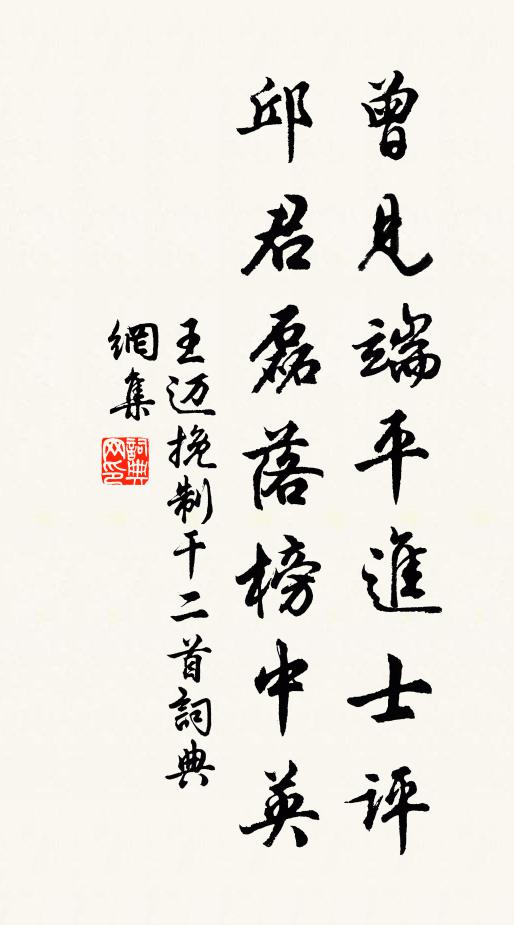 曾見端平進士評
邱君磊落榜中英
王迈挽制干二首詞典
網集
詞典網印